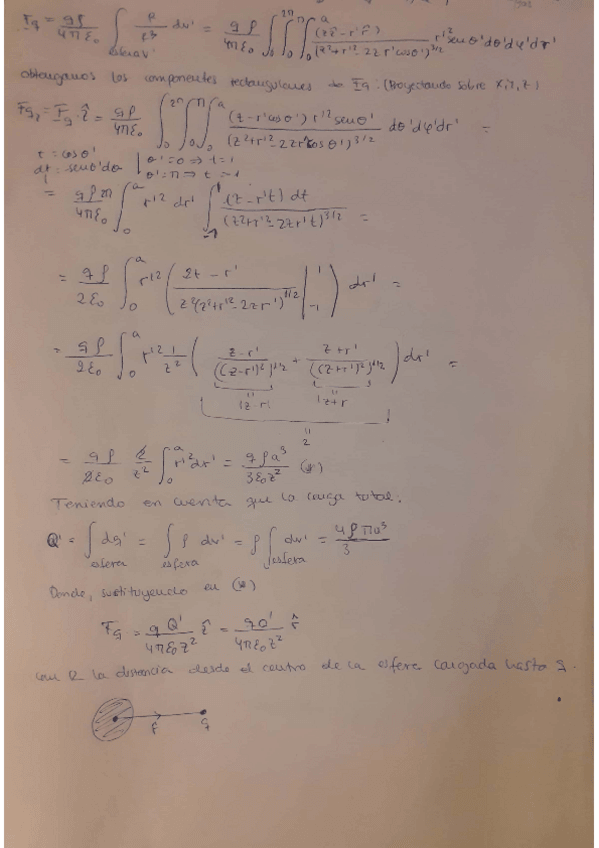 F_q = qρ/4πε₀ ∫_esfera V' R/R³ dv' = qρ/4πε₀ ∫₀^2π ∫₀^π ∫₀^a (zẑ - r'r̂') / (z²+r'²-2zr'cosθ')^3/2 r'² senθ'dθ'dφ'dr'
obtengamos las componentes rectangulares de F_q: (Proyectando sobre x, y, z)
F_qz = F_q·ẑ = qρ/4πε₀ ∫₀^2π ∫₀^π ∫₀^a (z-r'cosθ') r'² senθ' / (z²+r'²-2zr'cosθ')^3/2 dθ'dφ'dr' =
t = cosθ' | θ'=0 ⇒ t=1
dt = senθ'dθ | θ'=π ⇒ t=-1
= qρ2π/4πε₀ ∫₀^a r'² dr' ∫₋₁^1 (z-r't) dt / (z²+r'²-2zr't)^3/2 =
= qρ/2ε₀ ∫₀^a r'² ( 2t - r' / z²(z²+r'²-2zr')^1/2 |₋₁^1 ) dr' =
= qρ/2ε₀ ∫₀^a r'² 1/z² ( z-r' / ((z-r')²)^1/2 + z+r' / ((z+r')²)^1/2 ) dr' =
|z-r| |z+r
2
= qρ/2ε₀ 2/z² ∫₀^a r'² dr' = qρa³/3ε₀z² (*)
Teniendo en cuenta que la carga total:
Q' = ∫_esfera dq' = ∫_esfera ρ dv' = ρ ∫_esfera dv' = 4ρπa³/3
Donde, sustituyendo en (*)
F_q = qQ'/4πε₀z² ẑ = qQ'/4πε₀z² r̂
con R la distancia desde el centro de la esfera cargada hasta q.
r̂ q